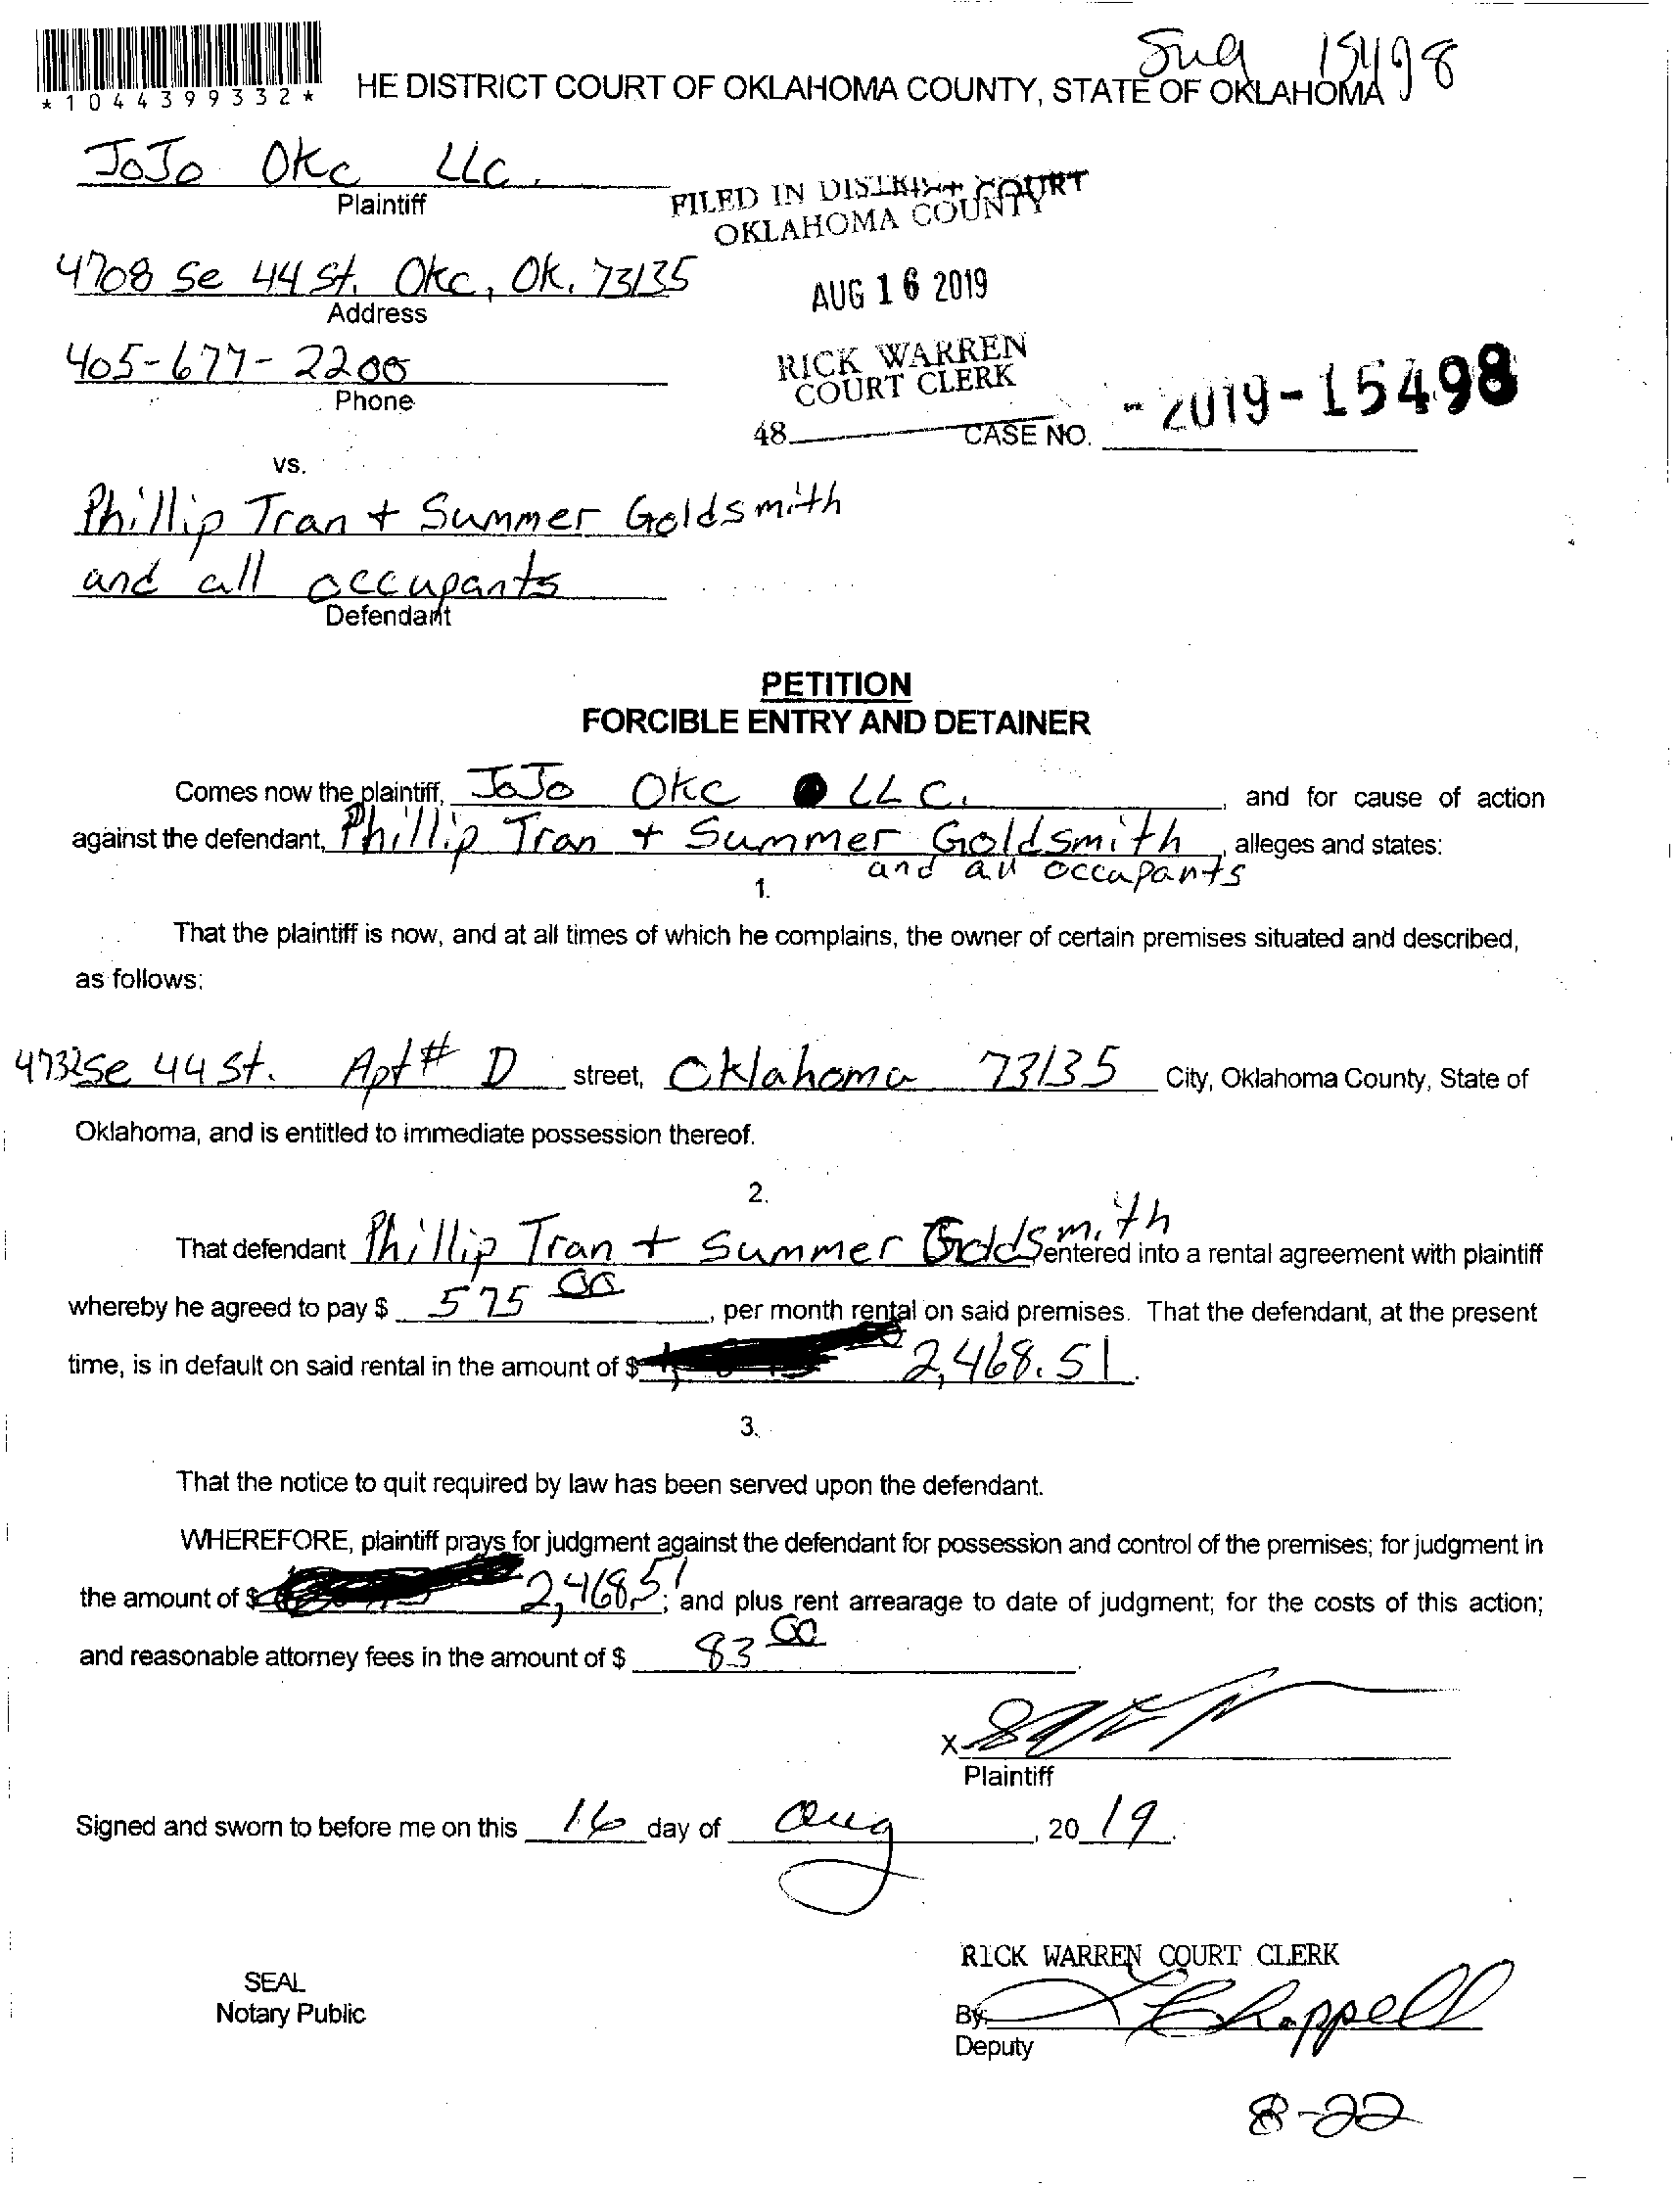 15498
*1044399332*
HE DISTRICT COURT OF OKLAHOMA COUNTY, STATE OF OKLAHOMA
JoJo Okc LLC.
Plaintiff
FILED IN DISTRICT COURT
OKLAHOMA COUNTY
4708 Se 44 St. Okc, Ok. 73135
Address
AUG 16 2019
405-677-2200
Phone
RICK WARREN
COURT CLERK
48 CASE NO. - 2019-15498
vs.
Phillip Tran + Summer Goldsmith
and all occupants
Defendant
PETITION
FORCIBLE ENTRY AND DETAINER
Comes now the plaintiff, JoJo Okc LLC. , and for cause of action
against the defendant, Phillip Tran + Summer Goldsmith , alleges and states:
and all occupants
1.
That the plaintiff is now, and at all times of which he complains, the owner of certain premises situated and described,
as follows:
4732 Se 44 St. Apt# D street, Oklahoma 73135 City, Oklahoma County, State of
Oklahoma, and is entitled to immediate possession thereof.
2.
That defendant Phillip Tran + Summer Goldsmith entered into a rental agreement with plaintiff
whereby he agreed to pay $ 575 00 , per month rental on said premises. That the defendant, at the present
time, is in default on said rental in the amount of $ 2,468.51.
3.
That the notice to quit required by law has been served upon the defendant.
WHEREFORE, plaintiff prays for judgment against the defendant for possession and control of the premises; for judgment in
the amount of $ 2,468.51; and plus rent arrearage to date of judgment; for the costs of this action;
and reasonable attorney fees in the amount of $ 83 00 .
X
Plaintiff
Signed and sworn to before me on this 16 day of Aug , 20 19.
RICK WARREN COURT CLERK
SEAL
Notary Public
By: Chappell
Deputy
8-22